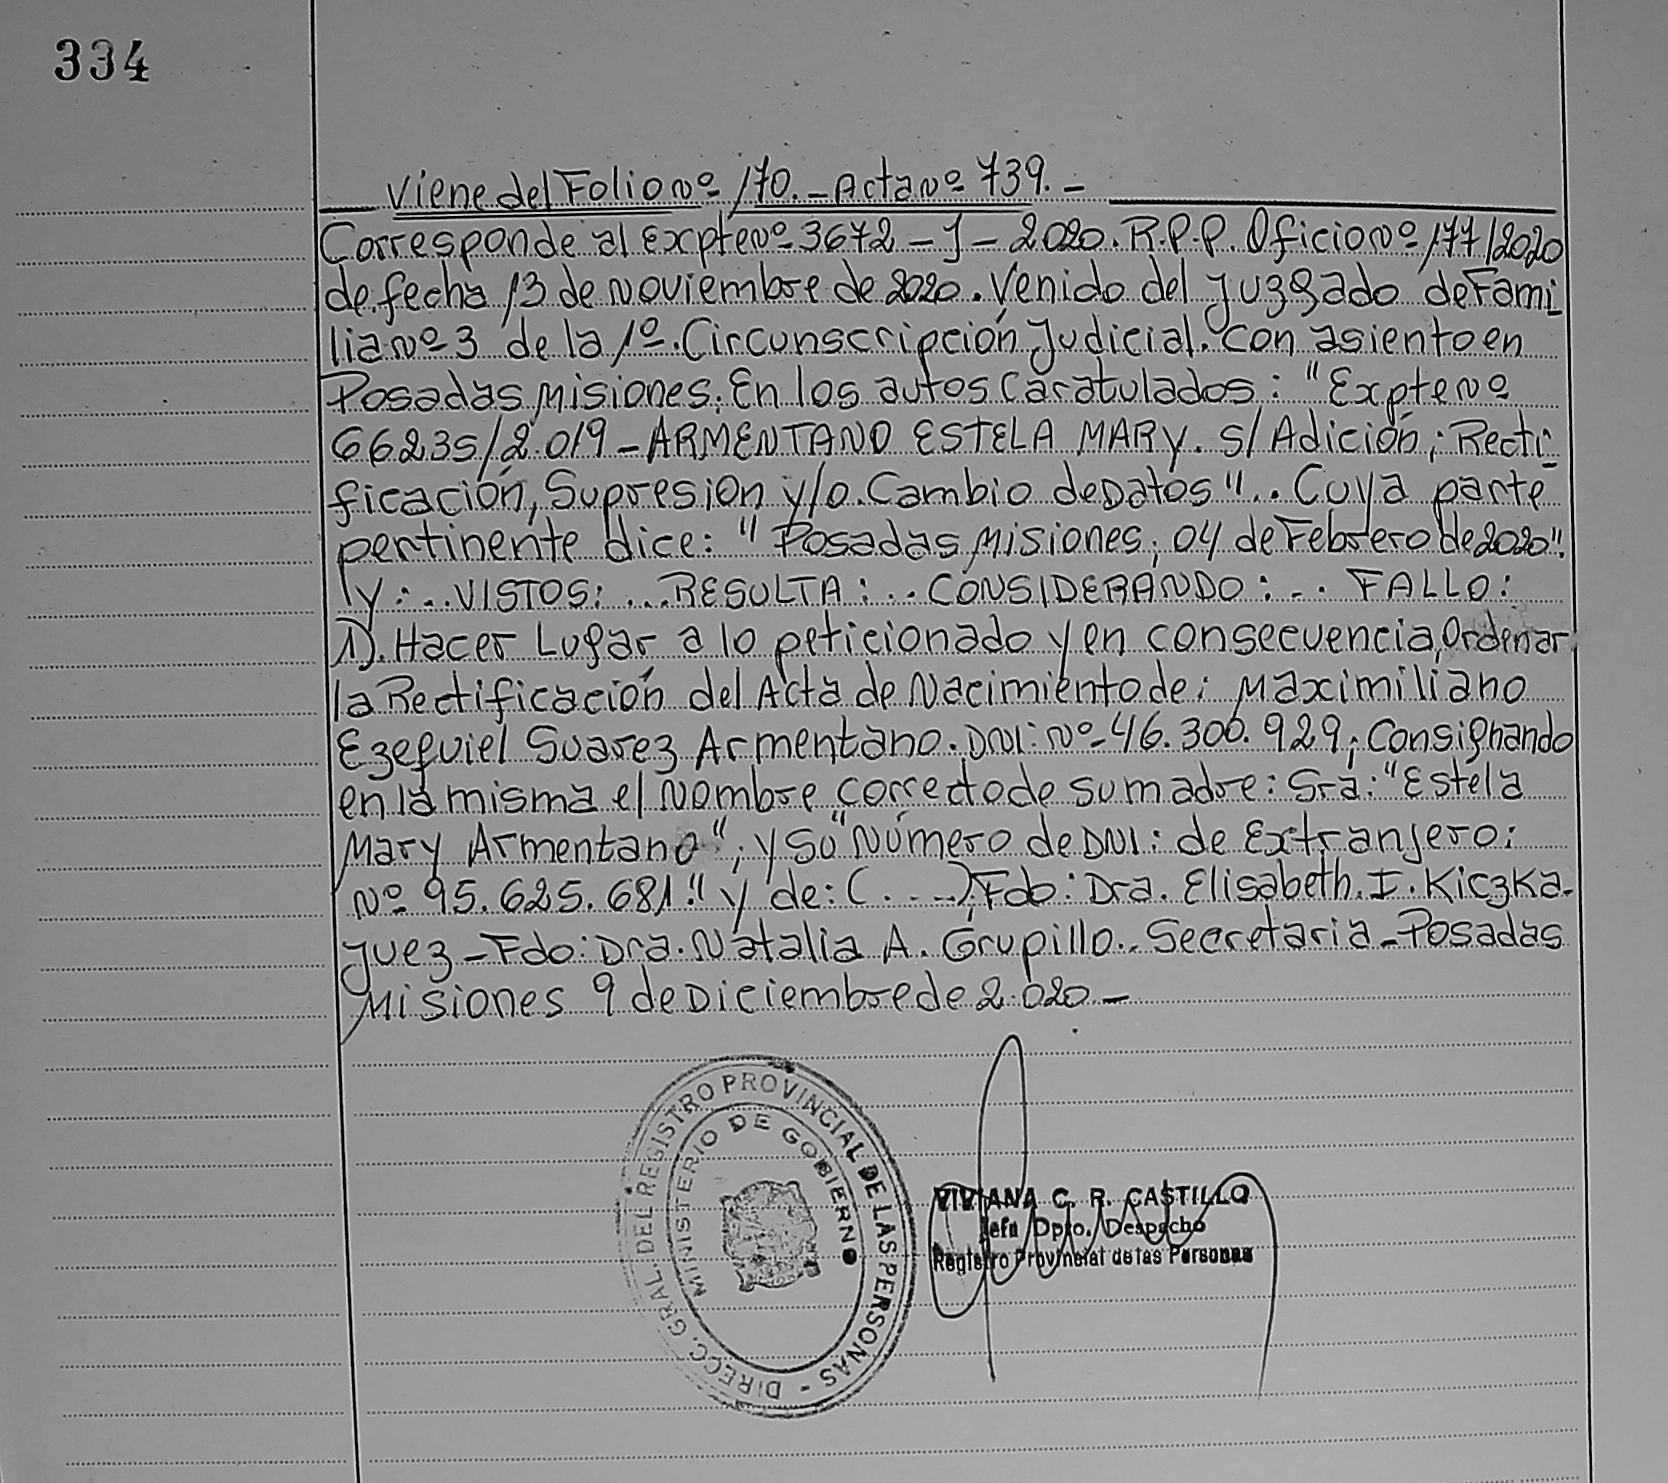 334
Viene del Folio Nº 170.- Acta Nº 739.-
Corresponde al Expte Nº 3672 - J - 2020. R.P.P. Oficio Nº 177/2020
de fecha 13 de Noviembre de 2020. Venido del Juzgado de Fami
lia Nº 3 de la 1º. Circunscripción Judicial. Con asiento en
Posadas Misiones. En los autos Caratulados: "Expte Nº
66235/2.019 - ARMENTANO ESTELA MARY. S/ Adición; Recti-
ficación, Supresion y/o. Cambio de Datos"... Cuya parte
pertinente dice: " Posadas Misiones, 04 de Febrero de 2020".
Y: ... VISTOS: ... RESULTA: ... CONSIDERANDO: ... FALLO:
1). Hacer Lugar a lo peticionado y en consecuencia, Ordenar
la Rectificación del Acta de Nacimiento de: Maximiliano
Ezequiel Suarez Armentano. DNI: Nº 46.300.929; Consignando
en la misma el Nombre correcto de su madre: Sra: "Estela
Mary Armentano"; y su "Número de DNI: de Extranjero:
Nº 95.625.681." y de: (....) Fdo: Dra. Elisabeth. I. Kiczka.
Juez - Fdo: Dra. Natalia A. Grupillo.. Secretaria - Posadas
Misiones 9 de Diciembre de 2.020.-
DIRECC. GRAL. DEL REGISTRO PROVINCIAL DE LAS PERSONAS -
MINISTERIO DE GOBIERNO
VIVIANA C. R. CASTILLO
Jefa Dpto. Despacho
Registro Provincial de las Personas